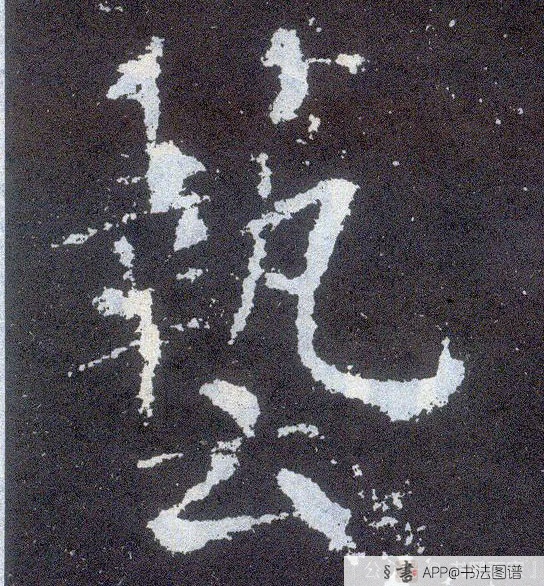 藝
§書 APP@书法图谱